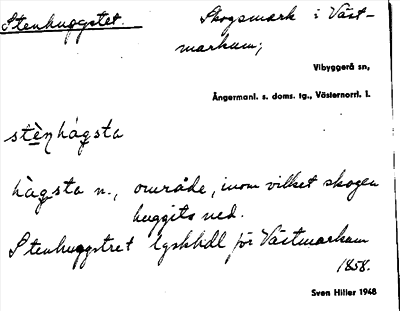 Stenhuggstet. Skogsmark i Väst-
markum;
Vibyggerå sn,
Ångermanl. s. doms. tg., Västernorrl. l.
stèn̥hágsta
hàgsta n., område, inom vilket skogen
huggits ned.
Stenhuggstret lgskbdl för Västmarkum
1858.
Sven Hiller 1948